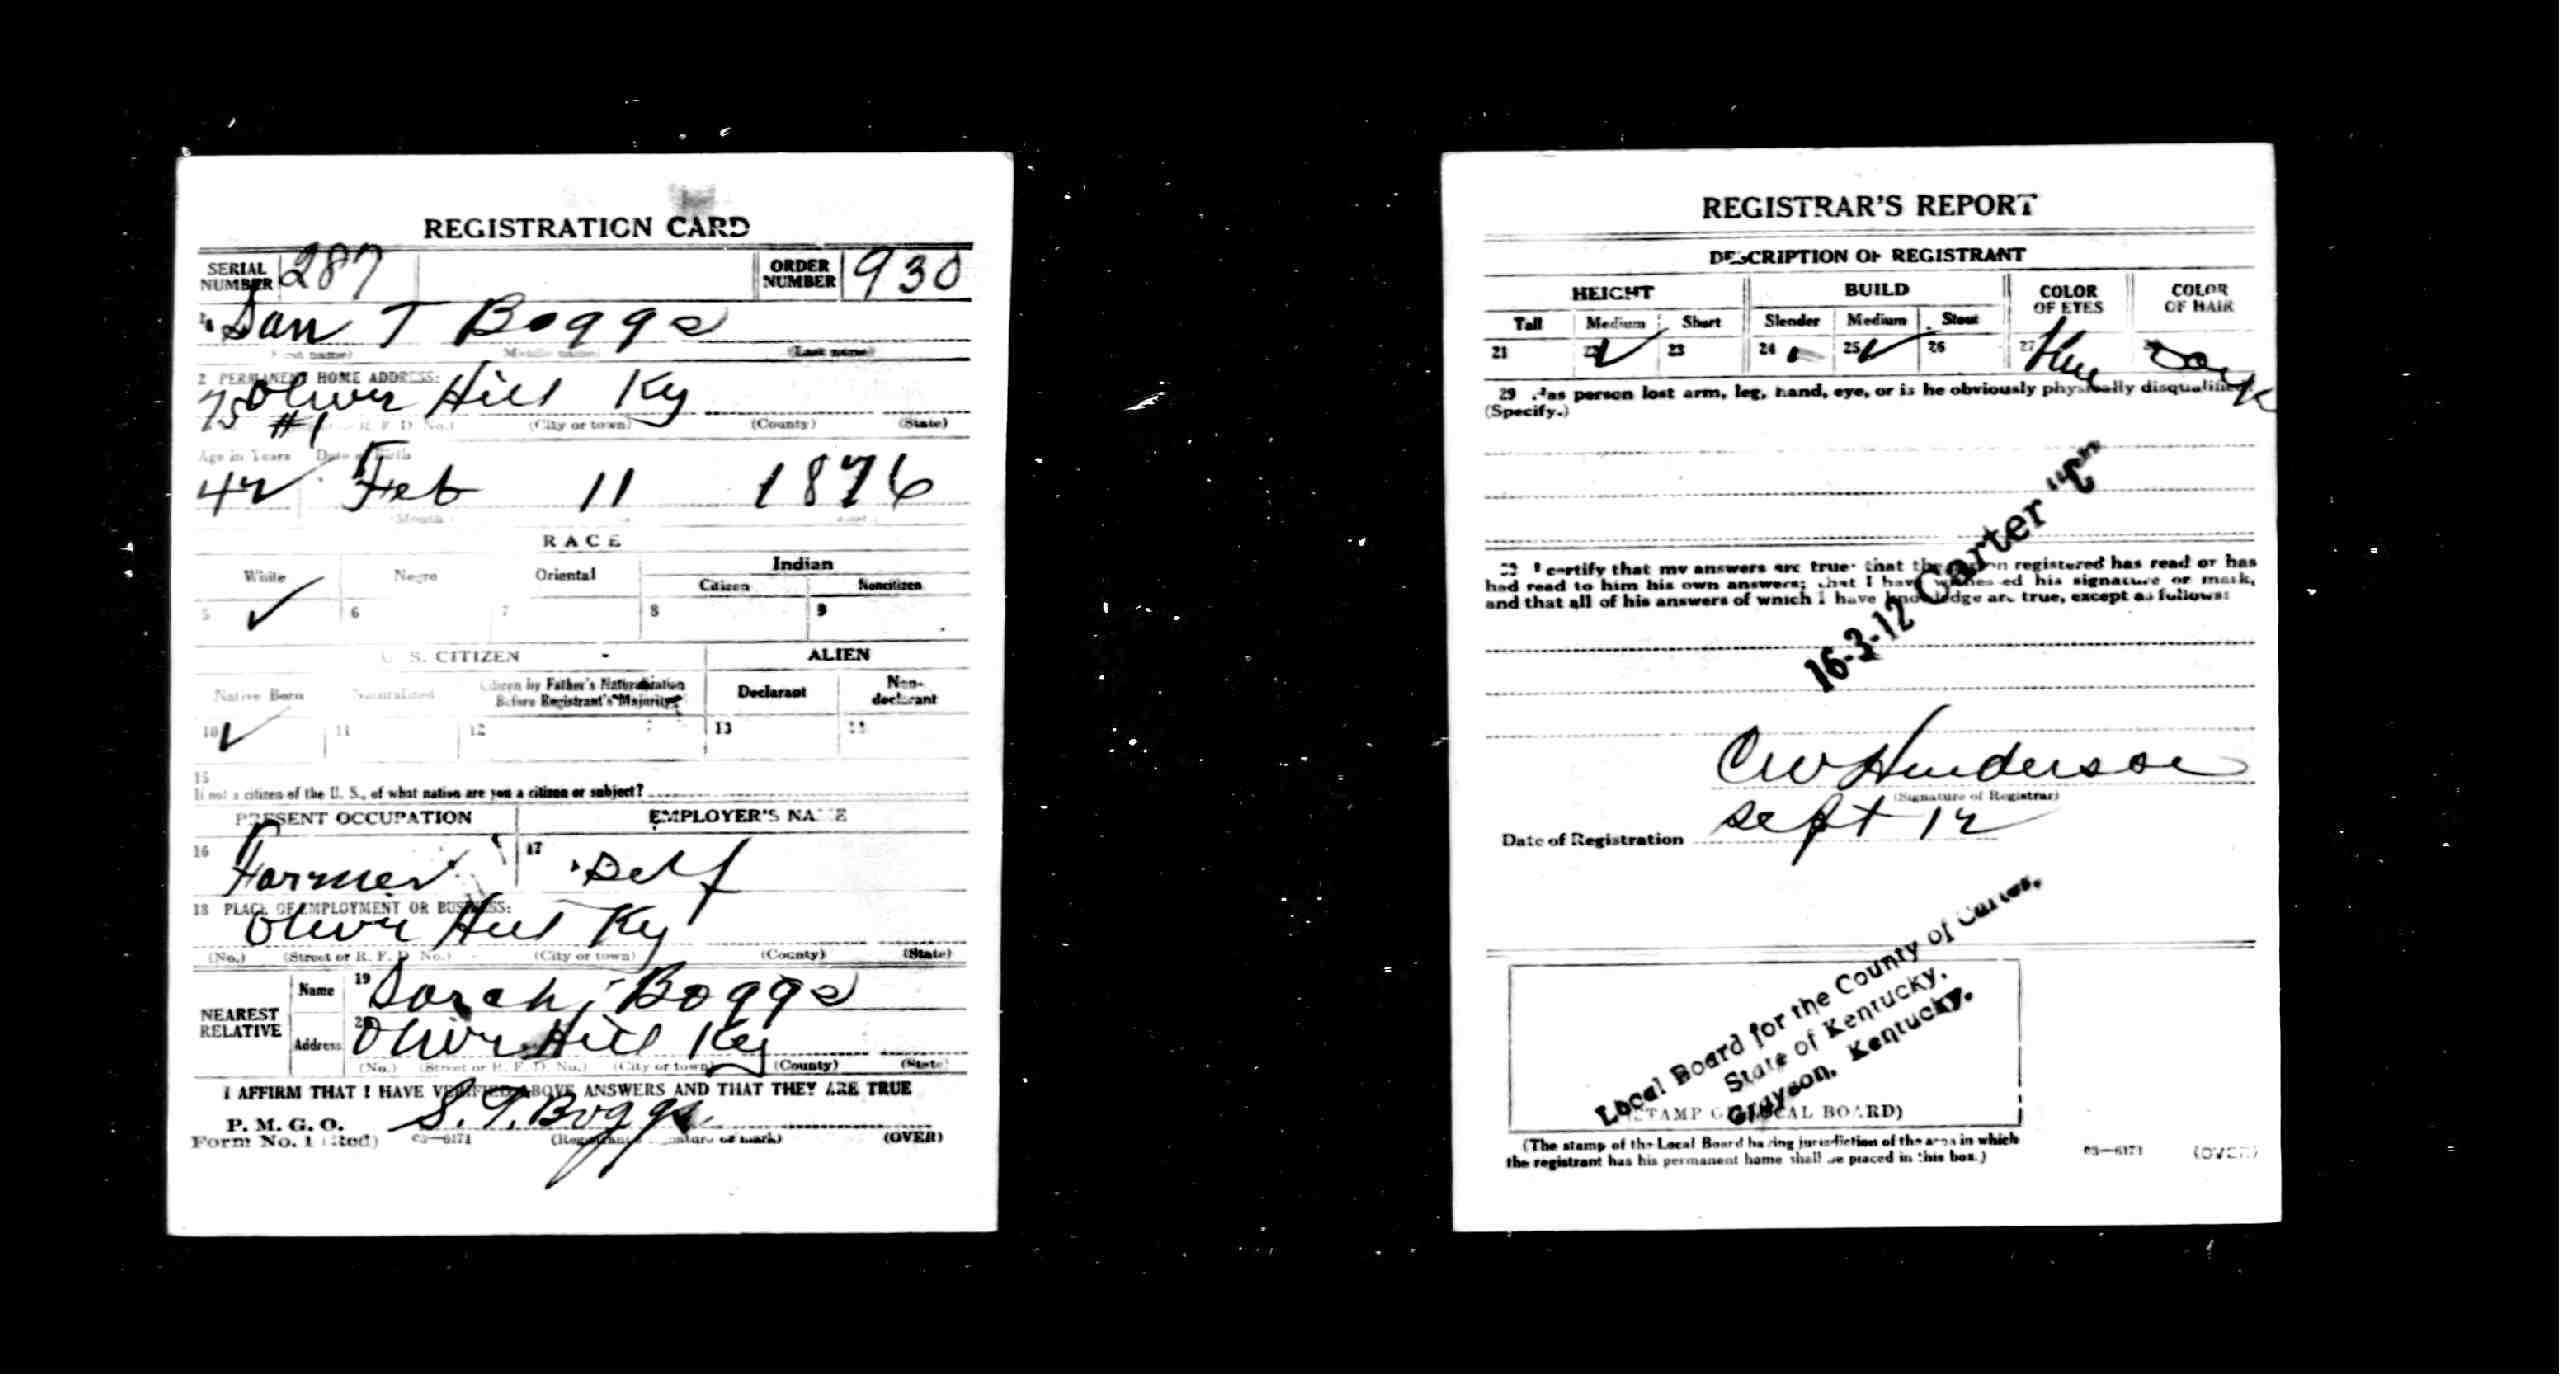 REGISTRATION CARD
SERIAL NUMBER 287 ORDER NUMBER 930
1 San T Boggs
(First name) (Middle name) (Last name)
2 PERMANENT HOME ADDRESS:
Oliver Hill Ky
#1 (City or town) (County) (State)
Age in Years Date of Birth
42 Feb 11 1876
(Month)
RACE
White Negro Oriental Indian
Citizen Noncitizen
5 ✓ 6 7 8 9
U. S. CITIZEN ALIEN
Native Born Naturalized Citizen by Father's Naturalization Before Registrant's Majority Declarant Non-declarant
10 ✓ 11 12 13 14
15
If not a citizen of the U. S., of what nation are you a citizen or subject?
PRESENT OCCUPATION EMPLOYER'S NAME
16 Farmer 17 Self
18 PLACE OF EMPLOYMENT OR BUSINESS:
Oliver Hill Ky
(No.) (Street or R. F. D. No.) (City or town) (County) (State)
NEAREST RELATIVE Name 19 Sarah Boggs
Address 20 Oliver Hill Ky
(No.) (Street or R. F. D. No.) (City or town) (County) (State)
I AFFIRM THAT I HAVE VERIFIED ABOVE ANSWERS AND THAT THEY ARE TRUE
P. M. G. O.
Form No. 1 (Red) 03—6171 S. T. Boggs (Registrant's signature or mark) (OVER)
REGISTRAR'S REPORT
DESCRIPTION OF REGISTRANT
HEIGHT BUILD COLOR OF EYES COLOR OF HAIR
Tall Medium Short Slender Medium Stout
21 22 ✓ 23 24 25 ✓ 26 27 Dark
29 Has person lost arm, leg, hand, eye, or is he obviously physically disqualified?
(Specify.)
16-3-12 Carter "C"
30 I certify that my answers are true; that the person registered has read or has
had read to him his own answers; that I have witnessed his signature or mark,
and that all of his answers of which I have knowledge are true, except as follows:
C W Henderson
(Signature of Registrar)
Date of Registration Sept 12
Local Board for the County of Carter,
State of Kentucky,
Grayson, Kentucky.
(STAMP OF LOCAL BOARD)
(The stamp of the Local Board having jurisdiction of the area in which
the registrant has his permanent home shall be placed in this box.)
03—6171 (OVER)